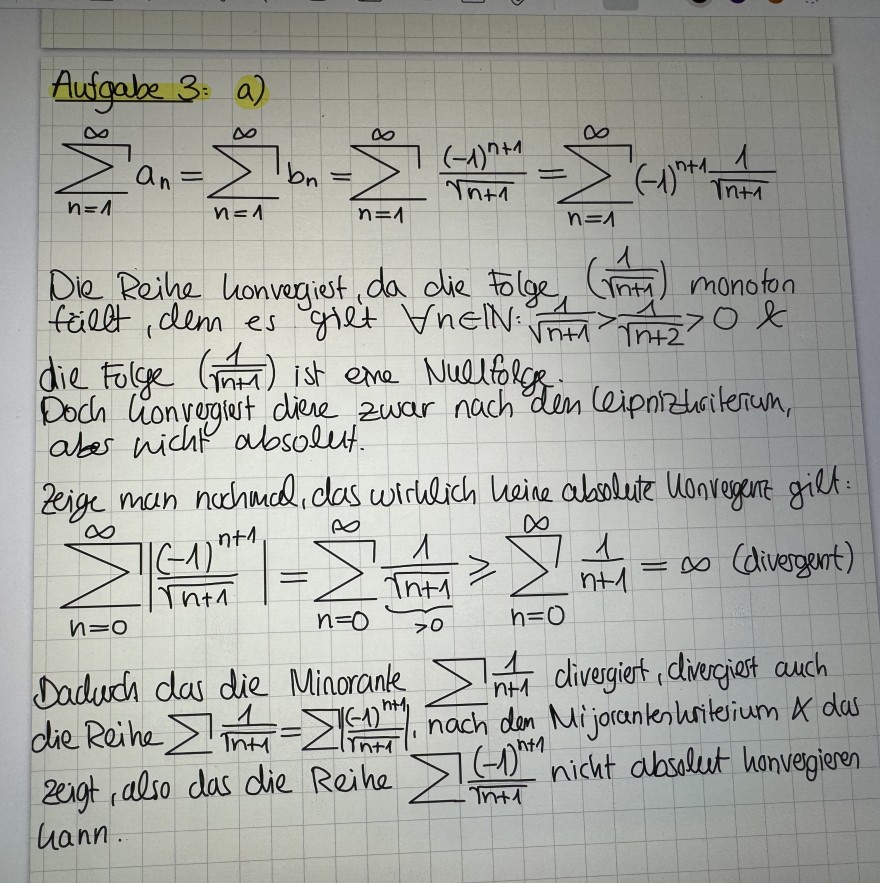 Aufgabe 3: a)
∑_{n=1}^{∞} a_n = ∑_{n=1}^{∞} b_n = ∑_{n=1}^{∞} (-1)^{n+1}/√(n+1) = ∑_{n=1}^{∞} (-1)^{n+1} 1/√(n+1)
Die Reihe konvegiest, da die Folge (1/√(n+1)) monoton
fällt, denn es gilt ∀n∈ℕ: 1/√(n+1) > 1/√(n+2) > 0 &
die Folge (1/√(n+1)) ist eine Nullfolge.
Doch konvergiest diese zwar nach den Leipnizkriterium,
aber nicht absolut.
Zeige man nochmal, das wirklich keine absolute Konvegenz gilt:
∑_{n=0}^{∞} |(-1)^{n+1}/√(n+1)| = ∑_{n=0}^{∞} 1/√(n+1) ≥ ∑_{n=0}^{∞} 1/(n+1) = ∞ (divergent)
>0
Daduch das die Minorante ∑ 1/(n+1) divergiert, divergiest auch
die Reihe ∑ 1/√(n+1) = ∑ |(-1)^{n+1}/√(n+1)|, nach den Mijorantenkriterium & das
zeigt, also das die Reihe ∑ (-1)^{n+1}/√(n+1) nicht absolut konvergieren
kann.